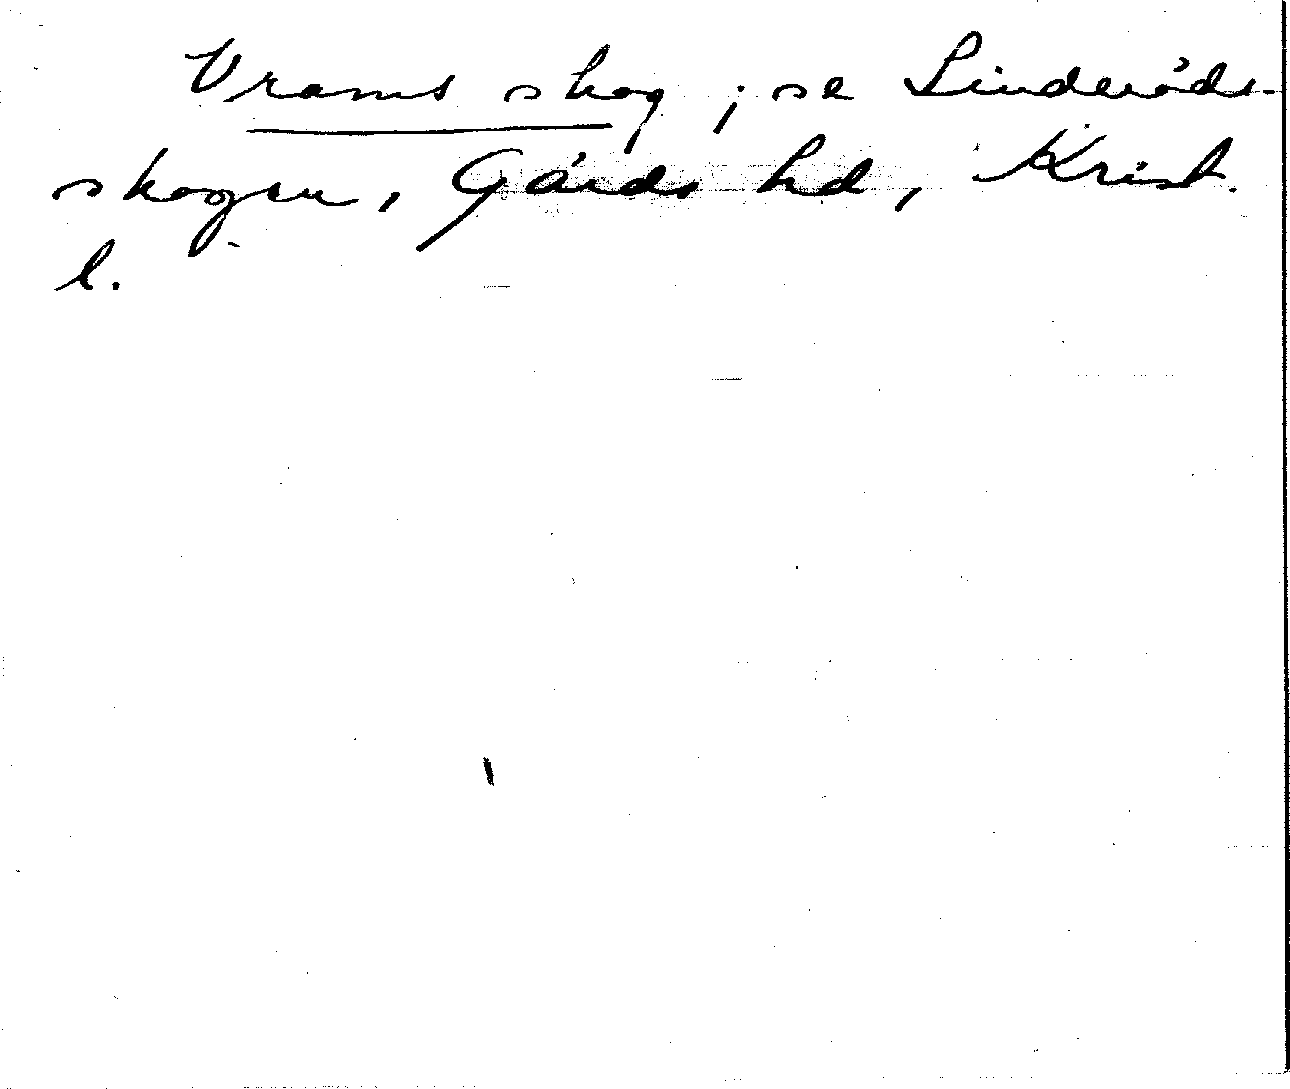 Vrams skog ; se Linderöds-
skogen, Gärds hd, Krist.
l.